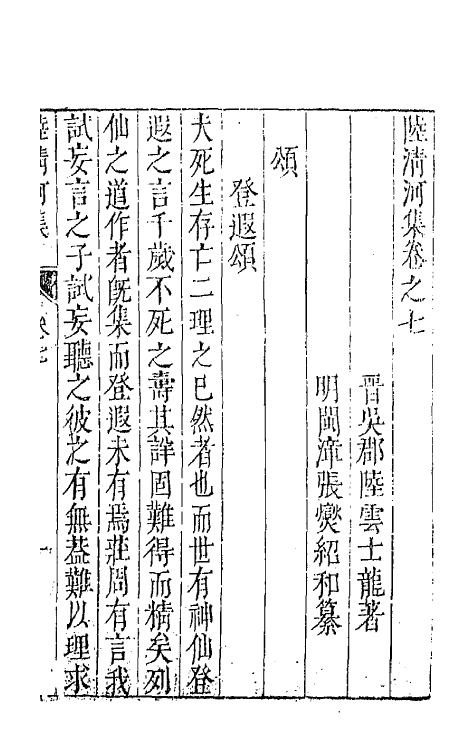 陸清河集卷之七
晉吳郡陸雲士龍著
明閩漳張燮紹和纂
頌
登遐頌
夫死生存亡二理之已然者也而世有神仙登
遐之言千歲不死之壽其詳固難得而精矣列
仙之道作者旣集而登遐未有焉莊周有言我
試妄言之子試妄聽之彼之有無葢難以理求
陸清河集 卷七 一